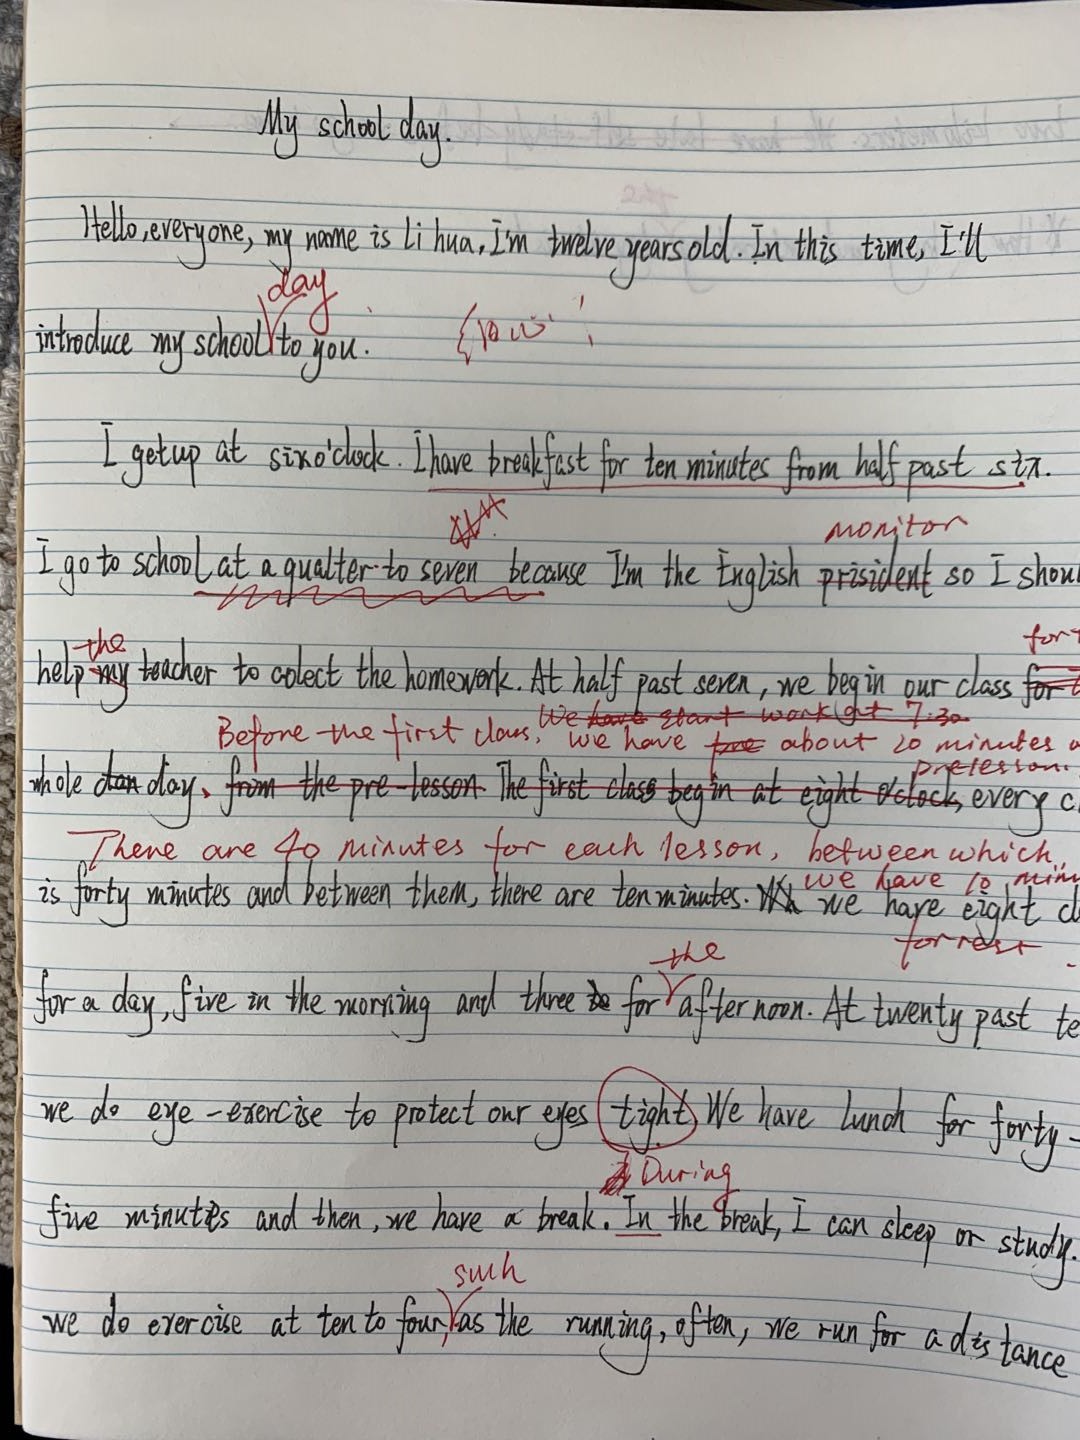 My school day.
Hello, everyone, my name is Li hua, I'm twelve years old. In this time, I'll
day
introduce my school to you.
I get up at six o'clock. I have breakfast for ten minutes from half past six.
monitor
I go to school at a qualter to seven because I'm the English prisident so I shoul
the
help my teacher to colect the homework. At half past seven, we begin our class for
We have start work at 7.30
Before the first class, we have about 20 minutes
prelesson.
whole day, from the pre-lesson. The first class begin at eight o'clock, every
There are 40 minutes for each lesson, between which,
we have 10 minu
is forty minutes and between them, there are ten minutes. we have eight cl
for rest
the
for a day, five in the morning and three for afternoon. At twenty past te
we do eye-exercise to protect our eyes tight. We have lunch for forty-
During
five minutes and then, we have a break. In the break, I can sleep or study.
such
we do exercise at ten to four, as the running, often, we run for a distance